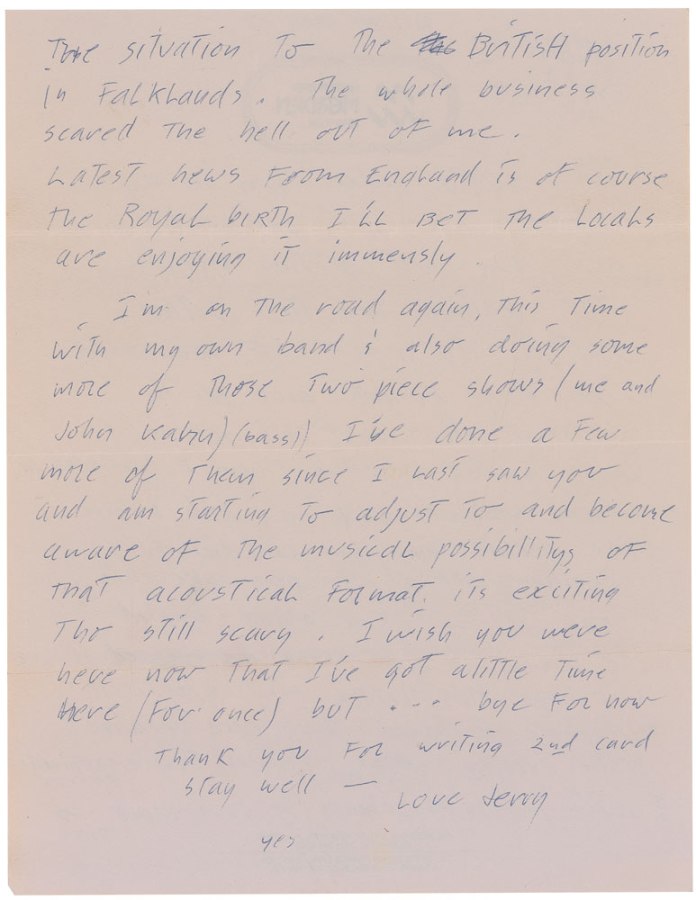 The situation to the British position
in Falklands. The whole business
scared the hell out of me.
Latest news from England is of course
the Royal birth I'll bet the locals
are enjoying it immensly.
I'm on the road again, this time
with my own band & also doing some
more of those two piece shows (me and
John Kahn) (bass)) I've done a few
more of them since I last saw you
and am starting to adjust to and become
aware of the musical possibilitys of
that acoustical format. its exciting
tho still scary. I wish you were
here now that I've got alittle time
here (for once) but ... bye for now
Thank you for writing 2nd card
stay well —
Love Jerry
yes